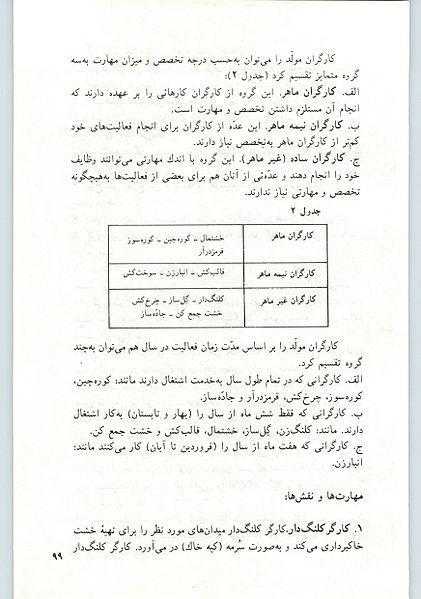 کارگران مولّد را می‌توان به‌حسب درجه تخصص و میزان مهارت به‌سه
گروه متمایز تقسیم کرد (جدول ۲):
الف. کارگران ماهر. این گروه از کارگران کارهائی را بر عهده دارند که
انجام آن مستلزم داشتن تخصص و مهارت است.
ب. کارگران نیمه ماهر. این عدّه از کارگران برای انجام فعالیت‌های خود
کم‌تر از کارگران ماهر به‌تخصص نیاز دارند.
ج. کارگران ساده (غیر ماهر). این گروه با اندك مهارتی می‌توانند وظایف
خود را انجام دهند و عدّه‌ئی از آنان هم برای بعضی از فعالیت‌ها به‌هیچگونه
تخصص و مهارتی نیاز ندارند.
جدول ۲
کارگران ماهر
خشتمال - کوره‌چین - کوره‌سوز
قرمزدرآر
کارگران نیمه ماهر
قالب‌کش - انبارزن - سوخت‌کش
کارگران غیر ماهر
کلنگ‌دار - گِل‌ساز - چرخ‌کش
خشت جمع کن - جادّه‌ساز
کارگران مولّد را بر اساس مدّت زمان فعالیت در سال هم می‌توان به‌چند
گروه تقسیم کرد.
الف. کارگرانی که در تمام طول سال به‌خدمت اشتغال دارند مانند: کوره‌چین،
کوره‌سوز، چرخ‌کش، قرمزدرآر و جادّه‌ساز.
ب. کارگرانی که فقط شش ماه از سال را (بهار و تابستان) به‌کار اشتغال
دارند. مانند: کلنگ‌زن، گِل‌ساز، خشتمال، قالب‌کش و خشت جمع کن.
ج. کارگرانی که هفت ماه از سال را (فروردین تا آبان) کار می‌کنند مانند:
انبارزن.
مهارت‌ها و نقش‌ها:
۱. کارگر کلنگ‌دار. کارگر کلنگ‌دار میدان‌های مورد نظر را برای تهیهٔ خشت
خاکبرداری می‌کند و به‌صورت سُرمه (کپه خاك) در می‌آورد. کارگر کلنگ‌دار
۹۹